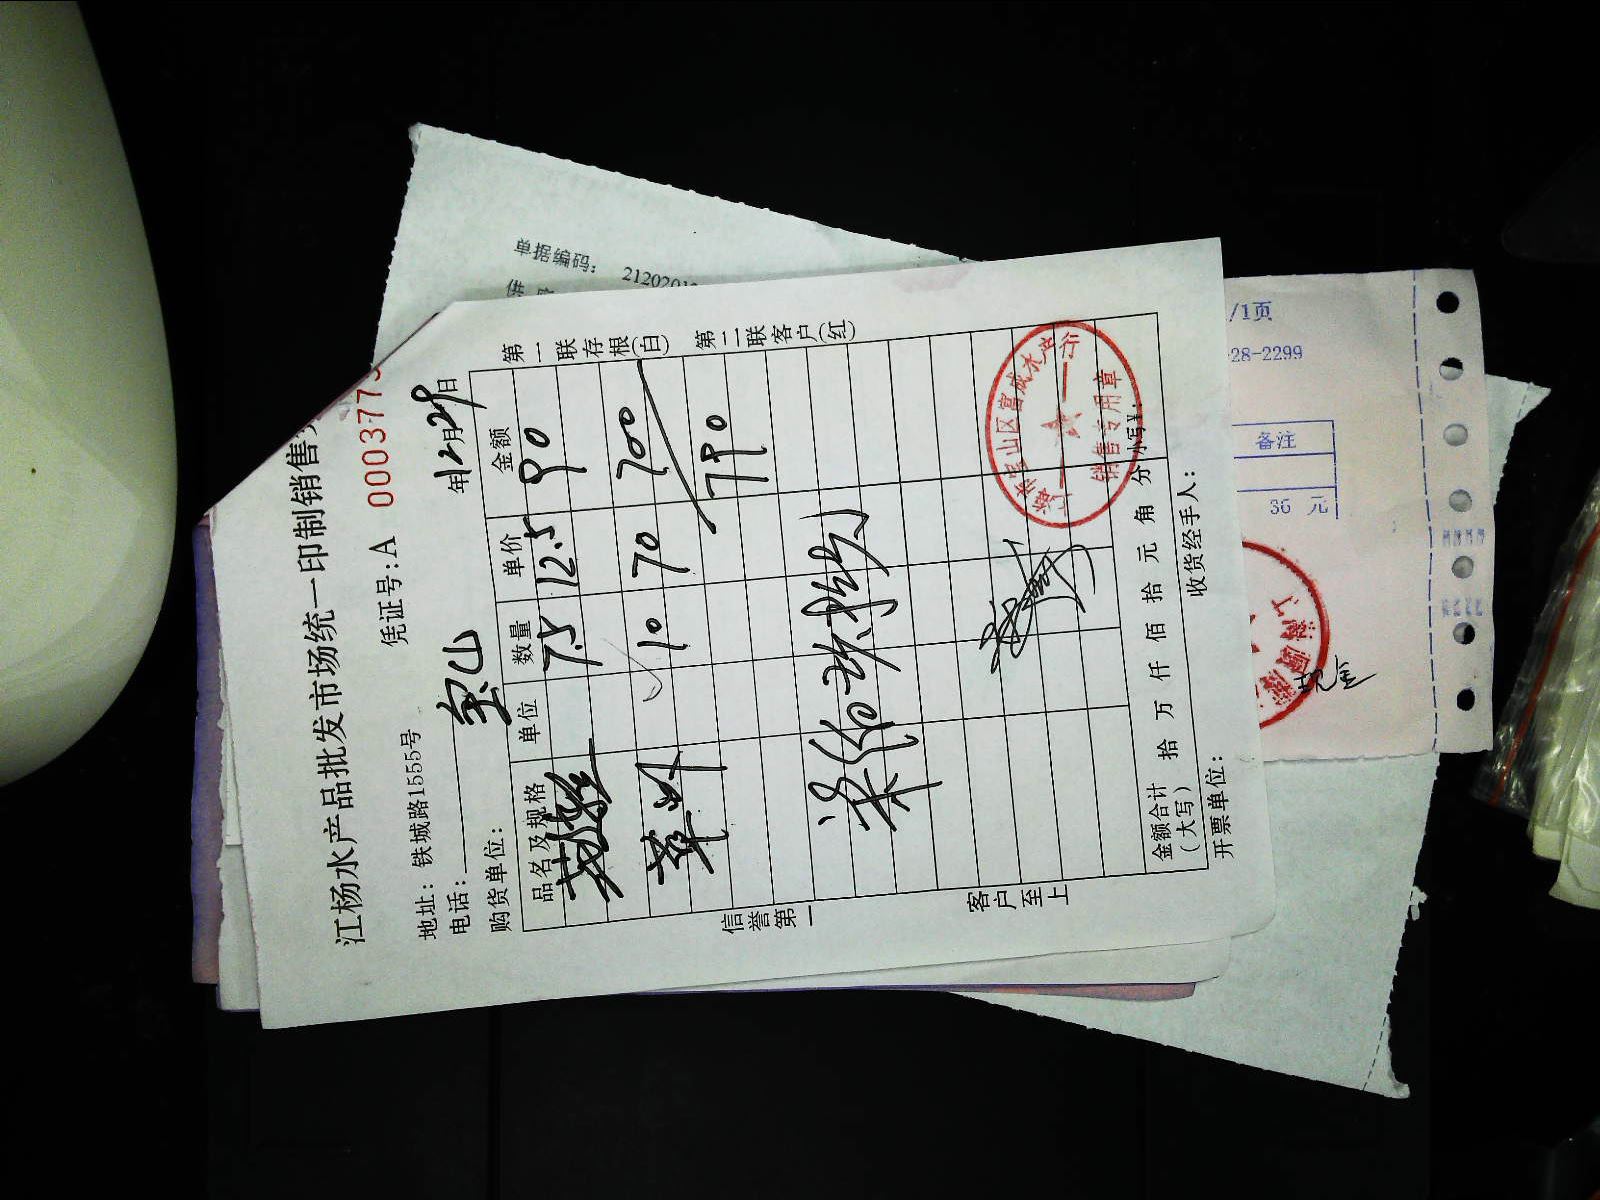 江杨水产品批发市场统一印制销售
凭证号:A 0003775
地址: 铁城路1555号
电话:
年12月29日
购货单位: 宝山
品名及规格 单位 数量 单价 金额
7.5 12.5 90
10 70 700
790
第一联存根(白) 第二联客户(红)
信誉第一 客户至上
金额合计(大写) 拾 万 仟 佰 拾 元 角 分 小写¥:
开票单位: 收货经手人:
销售专用章
单据编码: 2120201
/1页
28-2299
备注
36 元